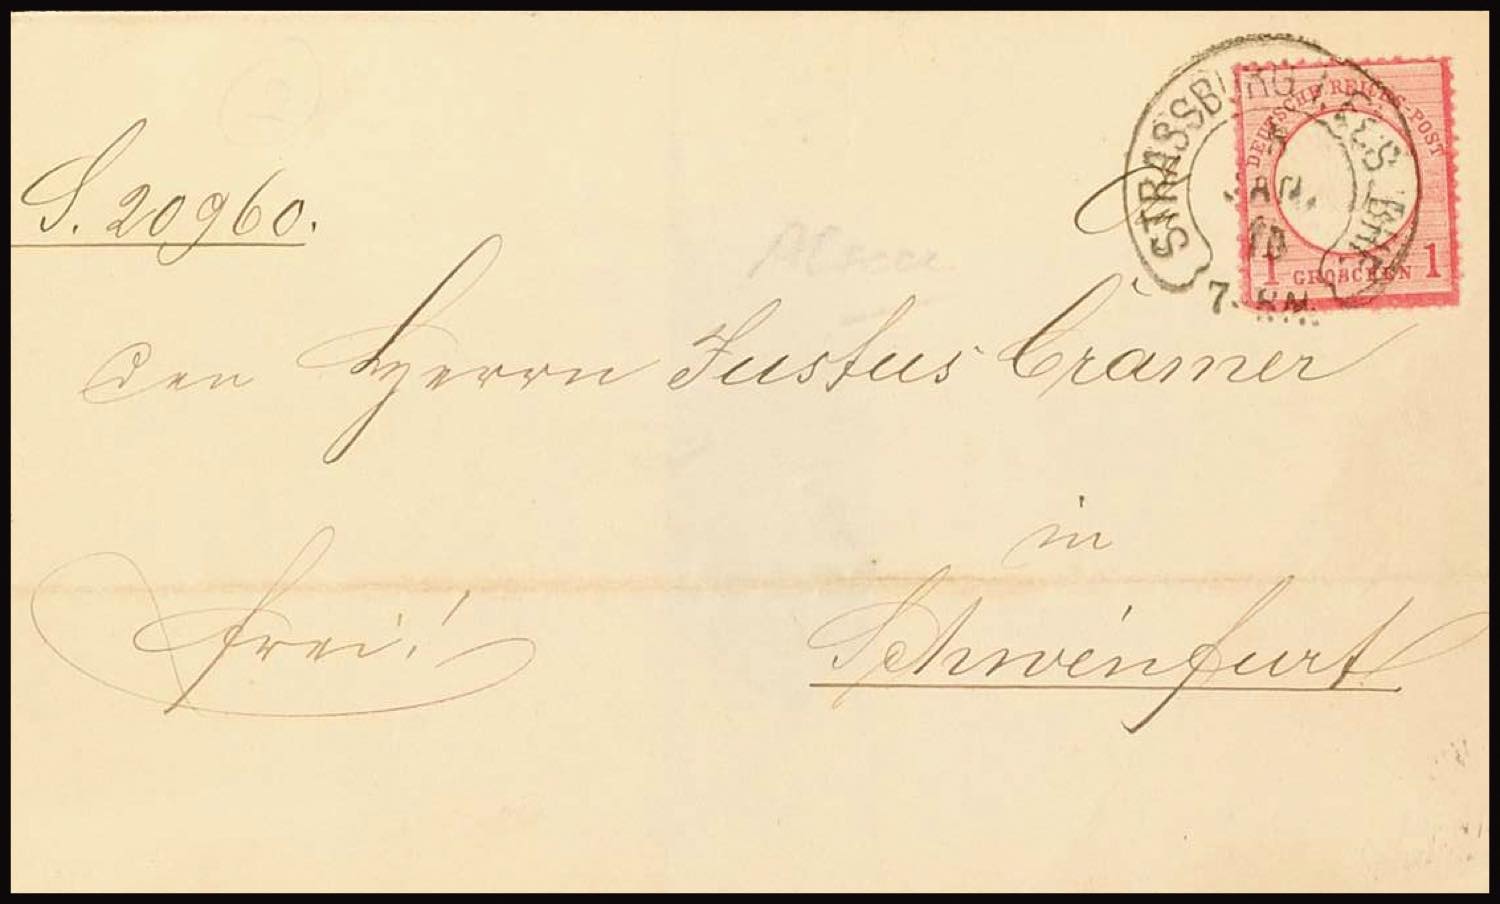 S. 20960.
STRASSBURG I. ELS. BHF.
JAN.
7-8 N.
DEUTSCHE REICHS-POST
1 GROSCHEN 1
Alsace
den Herrn Justus Crämer
in
frei!
Schweinfurt